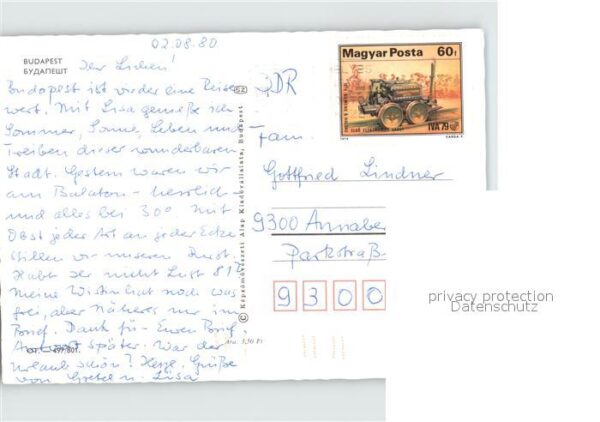 02.08.80
BUDAPEST
БУДАПЕШТ
Ihr Lieben!
Budapest ist wieder eine Reise
wert. Mit Lisa genieße ich
Sommer, Sonne, Leben und
Treiben dieser wunderbaren
Stadt. Gestern waren wir
am Balaton - herrlich -
und alles bei 30°. Mit
Obst jeder Art an jeder Ecke
stillen wir unseren Durst.
Habt Ihr nicht Lust 81?
Meine Wirtin hat noch was
frei, aber Näheres nur im
Brief. Dank für Euren Brief,
Antwort später. War der
Urlaub schön? Herzl. Grüße
von Gretel u. Lisa
497/801.
Ára: 3,50 Ft
© Képzőművészeti Alap Kiadóvállalata, Budapest
DDR
Magyar Posta 60f
IVA 79
Fam.
Gottfried Lindner
9300 Annabe
Parkstraß
9300
privacy protection
Datenschutz